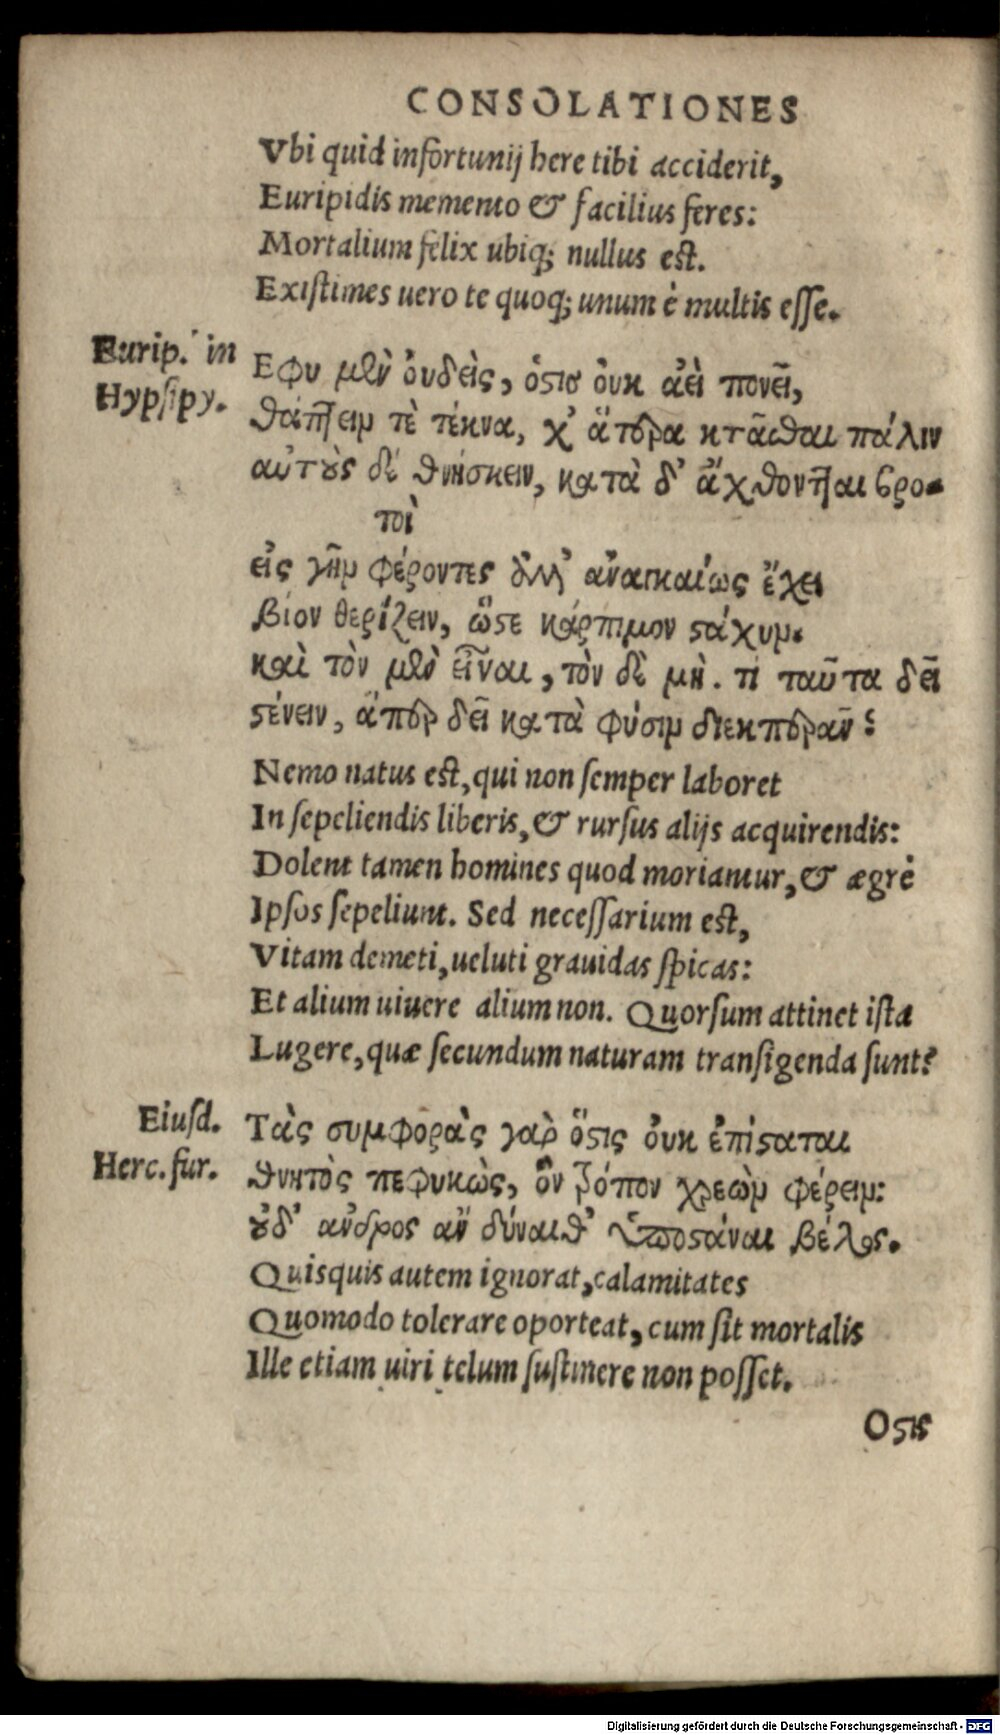 CONSOLATIONES
Vbi quid infortunij here tibi acciderit,
Euripidis memento & facilius feres:
Mortalium felix ubiq; nullus est.
Existimes uero te quoq; unum è multis esse.
Eurip. in
Hypsipy.
Εφυ μὲν ὀυδεὶς, ὁστισ ὀυκ ἀεὶ πονεῖ,
θάπτειμ τὲ τέκνα, χ' ἄτερα κτᾶσθαι πάλιν
αὐτούς δὲ θνήσκειν, κατὰ δ' ἄχθονται βρο-
τοὶ
εἰς γῆμ φέροντες ἀλλ' ἀναγκαίως ἔχει
βίον θερίζειν, ὥστε κάρπιμον στάχυμ.
καὶ τὸν μὲν εἶναι, τὸν δὲ μὴ. τί ταῦτα δεῖ
στένειν, ἅπερ δεῖ κατὰ φύσιμ διεκπερᾶν;
Nemo natus est, qui non semper laboret
In sepeliendis liberis, & rursus alijs acquirendis:
Dolent tamen homines quod moriantur, & ægrè
Ipsos sepeliunt. Sed necessarium est,
Vitam demeti, ueluti grauidas spicas:
Et alium uiuere alium non. Quorsum attinet ista
Lugere, quæ secundum naturam transigenda sunt?
Eiusd.
Herc. fur.
Τὰς συμφορὰς γὰρ ὅστις ὀυκ ἐπίσταται
θνητὸς πεφυκὼς, ὃν τρόπον χρεὼμ φέρειμ:
οὐδ' ἀνδρος ἂν δύναιθ' ὑποστάναι βέλος.
Quisquis autem ignorat, calamitates
Quomodo tolerare oporteat, cum sit mortalis
Ille etiam uiri telum sustinere non posset.
Οστις
Digitalisierung gefördert durch die Deutsche Forschungsgemeinschaft - DFG